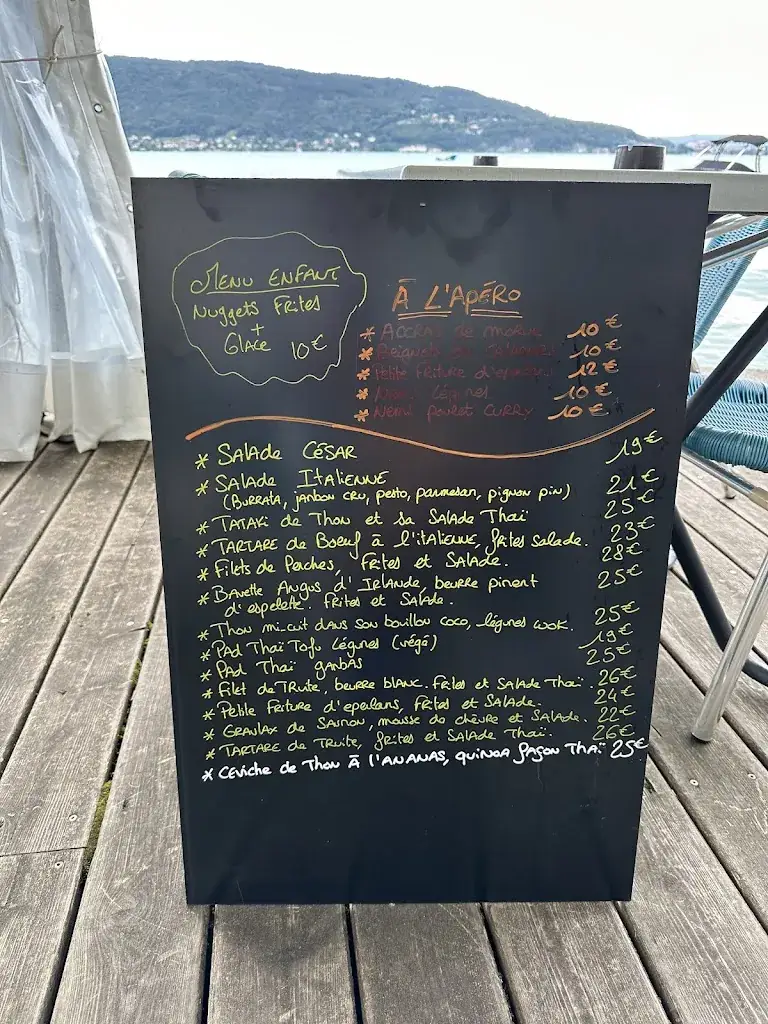 MENU ENFANT
Nuggets Frites
+
Glace 10€
À L'APÉRO
* Accras de morue 10€
* Beignets de 10€
* Petite friture d'eperlans 12€
* Nems légumes 10€
* Nems poulet CURRY 10€
* SALADE CÉSAR 19€
* SALADE ITALIENNE 21€
(BURRATA, jambon cru, pesto, parmesan, pignon pin)
* TATAKI de Thon et sa SALADE Thaï 25€
* TARTARE de Boeuf à l'italienne, frites salade. 23€
* Filets de Perches, Frites et Salade. 28€
* Bavette Angus d'Irlande, beurre piment 25€
d'espelette. Frites et Salade.
* Thon mi-cuit dans son bouillon coco, légumes wok. 25€
* PAD Thaï Tofu légumes (végé) 19€
* PAD Thaï GAMBAS 25€
* Filet de Truite, beurre blanc. Frites et Salade Thaï. 26€
* Petite Friture d'eperlans, Frites et Salade. 24€
* GRAVLAX de Saumon, mousse de chèvre et Salade. 22€
* TARTARE de Truite, frites et Salade Thaï. 26€
* Ceviche de Thon À l'ANANAS, quinoa façon Thaï 25€